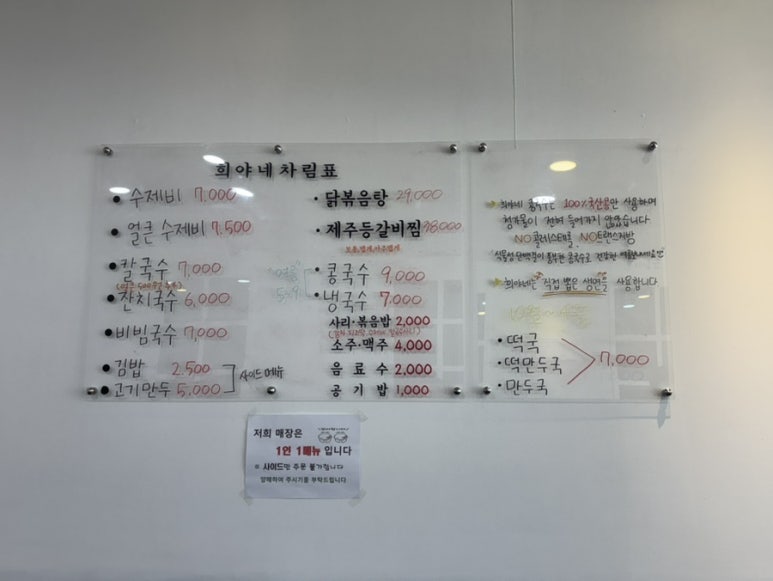 희야네차림표
• 수제비 7,000
• 얼큰 수제비 7,500
• 칼국수 7,000
• 잔치국수 6,000
• 비빔국수 7,000
• 김밥 2.500
• 고기만두 5,000
사이드메뉴
• 닭볶음탕 29,000
• 제주등갈비찜 38,000
보통,맵게,아주맵게
• 콩국수 9,000
• 냉국수 7,000
사리·볶음밥 2,000
소주·맥주 4,000
음료수 2,000
공기밥 1,000
희야네 콩국수는 100% 국산콩만 사용하며
첨가물이 전혀 들어가지 않았습니다
NO콜레스테롤, NO트랜스지방
희야네는 직접 뽑은 생면을 사용합니다
• 떡국
• 떡만두국 7,000
• 만두국
저희 매장은
1인 1메뉴 입니다
※ 사이드만 주문 불가합니다
양해하여 주시기를 부탁드립니다